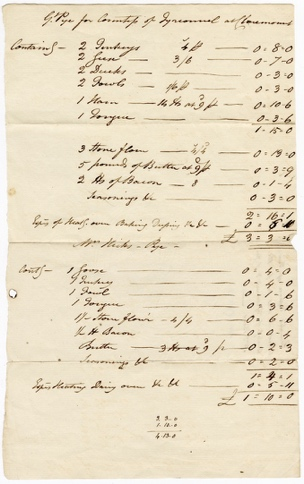 G. Pye for Countess of Tyrconnel at Claremont
Contains — 2 Turkeys — 4/ — 0 = 8 = 0
2 Geese — 3/6 — 0 - 7 - 0
2 Ducks — 0 - 3 - 0
2 Fowls — 1/6 — 0 - 3 - 0
1 Ham — 14 lbs at 9 — 0 = 10 = 6
1 Tongue — 0 - 3 - 6
1 - 15 - 0
3 Stone flour — 4/4 — 0 = 13 = 0
5 pounds of Butter at 9 — 0 = 3 = 9
2 lbs of Bacon — 8 — 0 - 1 - 4
Seasonings &c — 0 - 3 = 0
2 = 16 = 1
over Baking &c — 0 = 5 = 11
£ 3 = 3 = 0
Mr Pye
Conts — 1 Goose — 0 = 4 = 0
1 Turkey — 0 - 4 - 0
1 Fowl — 0 = 1 = 6
1 Tongue — 0 = 3 = 6
1½ Stone flour — 4/4 — 0 = 6 = 6
½ lb Bacon — 0 - 0 - 4
Butter — 3 lbs at 9 — 0 - 2 = 3
Seasonings &c — 0 = 2 = 0
1 = 4 = 1
Heating oven &c &c — 0 = 5 - 11
£ 1 = 10 = 0
3. 3. 0
1. 10. 0
4. 13. 0